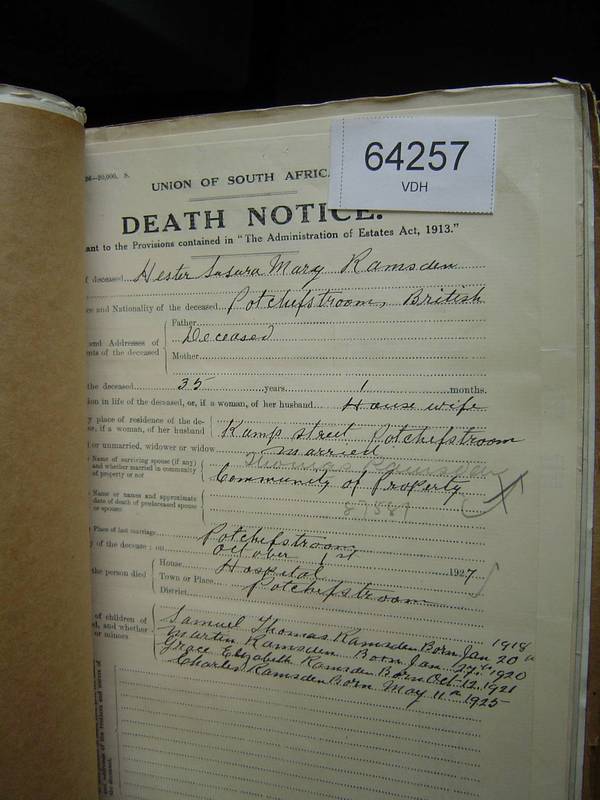 64257
VDH
26—20,000. S.
UNION OF SOUTH AFRICA
DEATH NOTICE.
ant to the Provisions contained in "The Administration of Estates Act, 1913."
of deceased Hester Susara Mary Ramsden
ce and Nationality of the deceased Potchefstroom, British
Father
and Addresses of Deceased
nts of the deceased
Mother
the deceased 35 years 1 months.
ion in life of the deceased, or, if a woman, of her husband House wife
y place of residence of the de-
se, if a woman, of her husband Kamp street Potchefstroom
or unmarried, widower or widow married
Name of surviving spouse (if any) Thomas Ramsden
and whether married in community
of property or not Community of Property
Name or names and approximate
date of death of predeceased spouse
or spouses
Place of last marriage Potchefstroom
y of the decease; on October 1st 1927
House Hospital
the person died
Town or Place Potchefstroom
District
of children of Samuel Thomas Ramsden Born Jan 20th 1918
d, and whether Martin Ramsden Born Jan 27th 1920
or minors Grace Elizabeth Ramsden Born Oct 12 1921
Charles Ramsden Born May 11th 1925